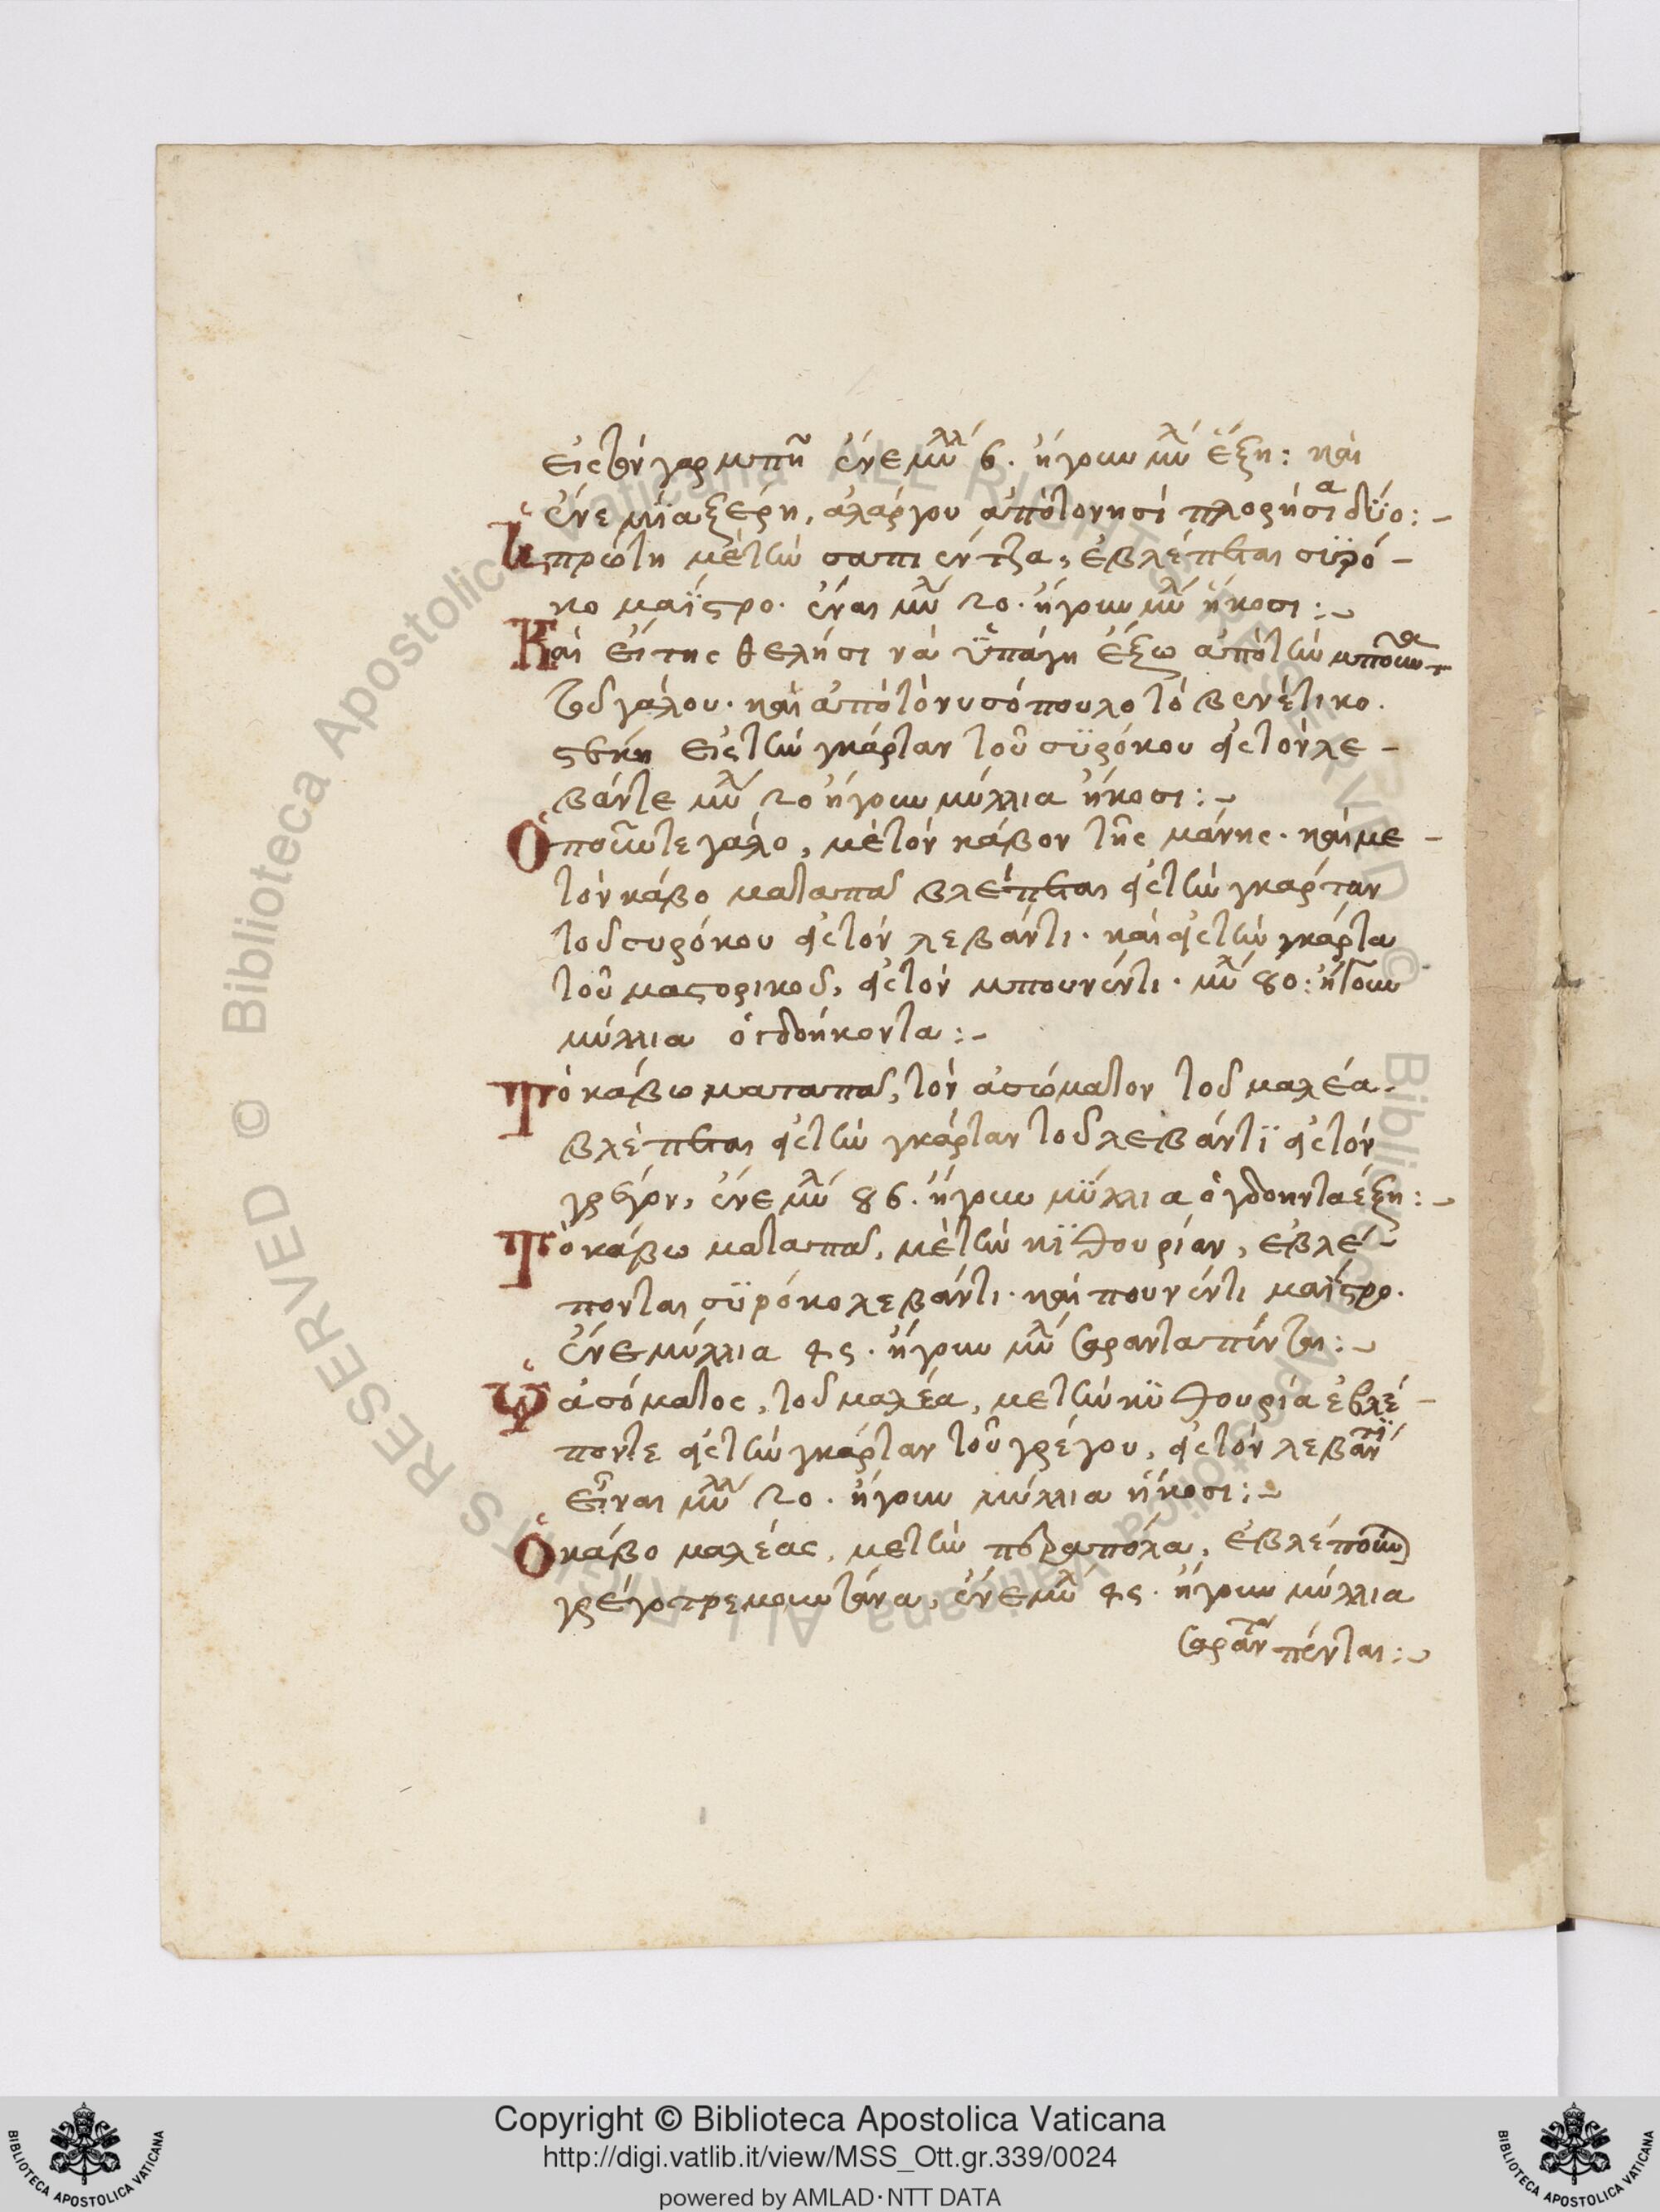 εἰς τὴν γαρμπὴ ἔνε μύλλ 6. ἤγουν μύλ ἕξη: καὶ
ἔνε μία ξέρη, αλάργου απὸ τονησί πλορήσια δϋο:-
Ἡ πρώτη μὲ τὴν σαπιέντζα, ἐβλέπεται σϋρό-
κο μαΐστρο. ἔναι μύλ 20. ἤγουν μύλ ἤκοσι:-
Καὶ εἴ της θελήσι νὰ ϋπάγη ἔξω απὸ τὴν μπούντα
τοῦ γάλου. καὶ ἀπὸ τὸ νυσόπουλο τὸ βενέτικο.
στέκη εἰς τὴν γκάρταν τοῦ σϋρόκου ῾ς τὸν λε-
βάντε μύλ 20 ἤγουν μύλλια ἤκοσι:-
Ὁ ποῦντεγάλο, μὲ τὸν κάβον τῆς μάνης. καὶ με
τὸν κάβο ματαπαῦ βλέπεται ῾ς τὴν γκαρταν
τοῦ συρόκου ῾ς τὸν λεβάντι. καὶ ῾ς τὴν γκάρτα
τοῦ μαστορικοῦ, ῾ς τὸν μπουνέντι. μύλ 80: ἤγουν
μύλλια ὀγδοήκοντα:-
Τὸ κάβω ματαπαῦ, τὸν ἀσώματον τοῦ μαλέα.
βλέπεται ῾ς τὴν γκάρταν τοῦ λεβάντϊ ῾ς τὸν
γρέγον, ἔνε μύλ 86. ἤγουν μϋλλια ὀγδοηνταέξη:-
Τὸ κάβω ματαπαῦ, μὲ τὴν κϊθουρίαν, εβλέ-
πονται σϋρόκο λεβάντι. καὶ πουνέντι μαΐστρο.
ἔνε μύλλια 45. ἤγουν μύλ σαρανταπέντε:-
Ὡ ἀσόματος, τοῦ μαλέα, με τὴν κϋθουρία ἐβλέ-
ποντε ῾ς τὴν γκάρταν τοῦ γρέγου, ῾ς τὸν λεβάντϊ
εἶναι μύλλ 20. ἤγουν μύλλια ἤκοσι:-
Ὁ κάβο μαλέας, με τὴν πόρταπόλα, ἐβλέπουν
γρέγο τρεμουντάνα, ἔνε μύλ 45. ἤγουν μύλλια
σαράντα πένται:-
Copyright © Biblioteca Apostolica Vaticana
http://digi.vatlib.it/view/MSS_Ott.gr.339/0024
powered by AMLAD·NTT DATA